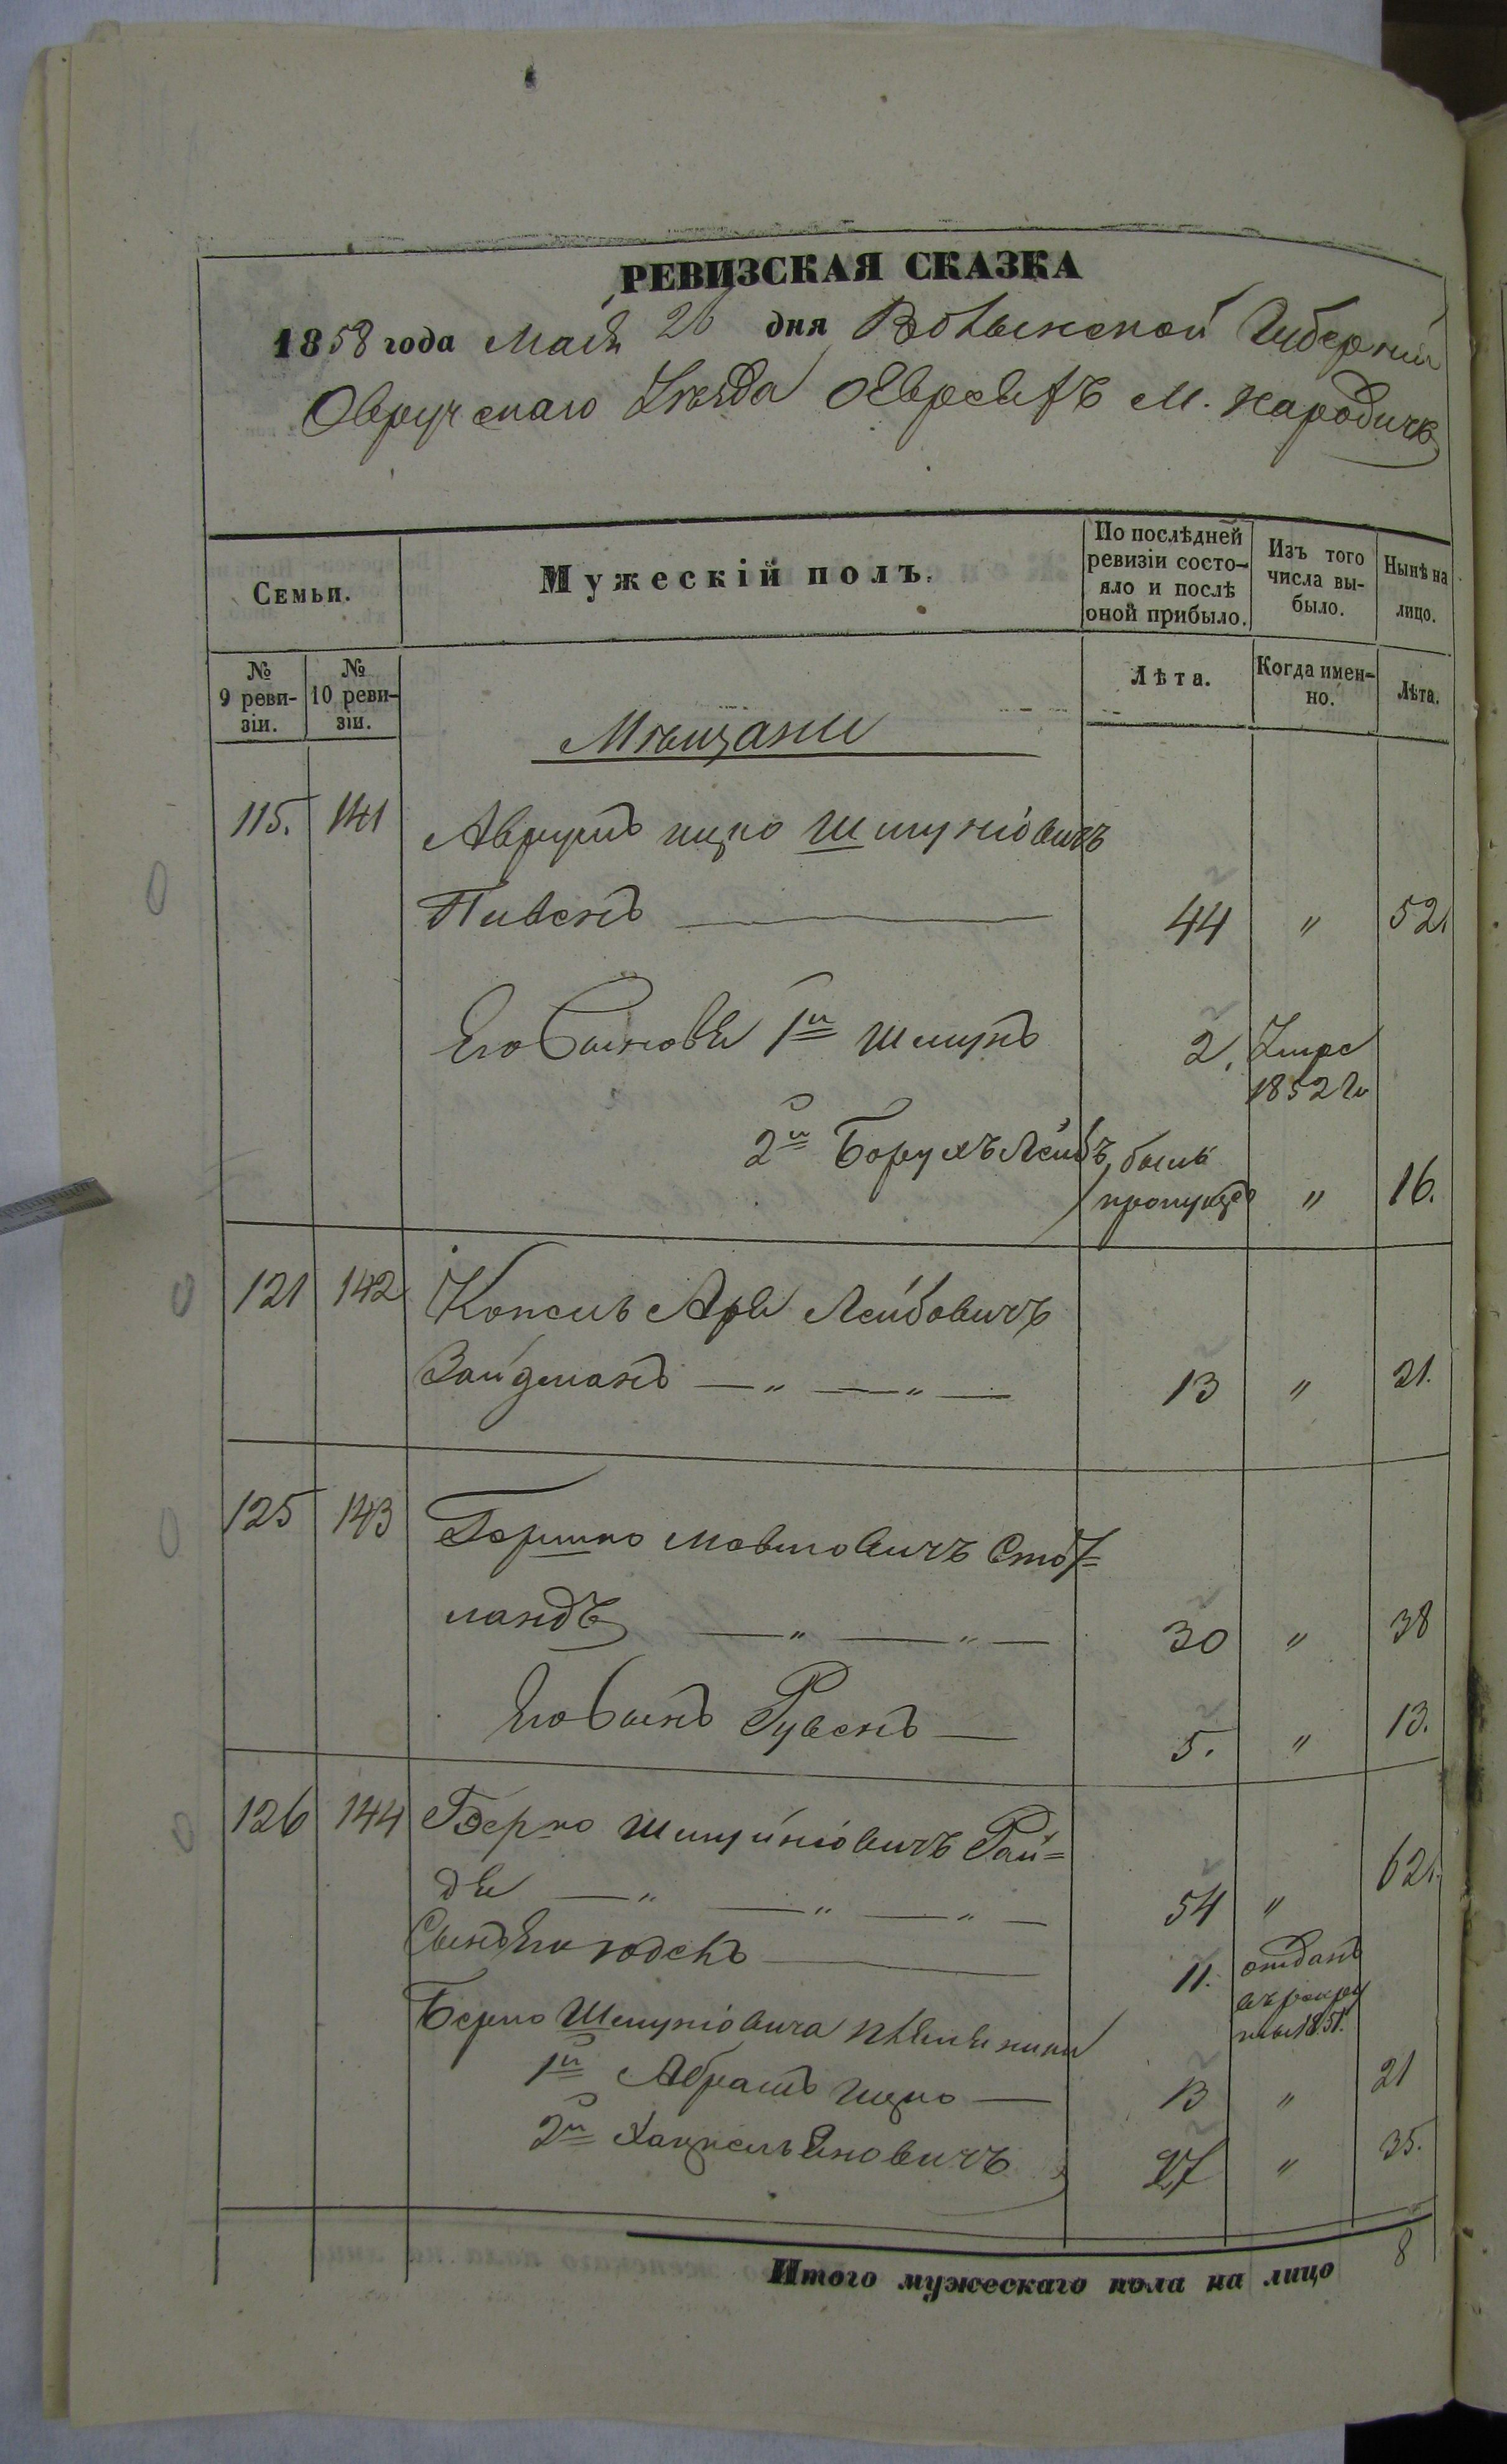 РЕВИЗСКАЯ СКАЗКА
1858 года Мая 26 дня Волынской Губерніи
Овручскаго Уѣзда Евреевъ М. Народичъ
Семьи.
Мужескій полъ.
По послѣдней ревизіи состо-
яло и послѣ
оной прибыло.
Изъ того
числа вы-
было.
Нынѣ на
лицо.
№
9 реви-
зіи.
№
10 реви-
зіи.
Лѣта.
Когда имен-
но.
Лѣта.
Мѣщане
115. 141 Аврумъ Ицко Шмуніовичъ
Пивень 44 " 52.
Его Сыновья 1й Шмунъ 2, Умре
1852 Го
2й Борухъ Лейбъ былъ
пропущ " 16.
121 142 Копель Арья Лейбовичъ
Зайдманъ — " — " — 13 " 21.
125 143 Гершко Мовшовичъ Сто=
ландъ — " — " — 30 " 38
Его Сынъ Рувенъ — 5. " 13.
126 144 Берко Шмуйніовичъ Рай=
дя — " — " — " — 54 " 62.
Сынъ Его 11. отданъ
въ рекру
ты 1851.
Берко Шмуніовича племянники
1й Абрамъ Ицко — 13 " 21
2й Хацкель Еновичъ 27 " 35.
Итого мужескаго пола на лицо 8